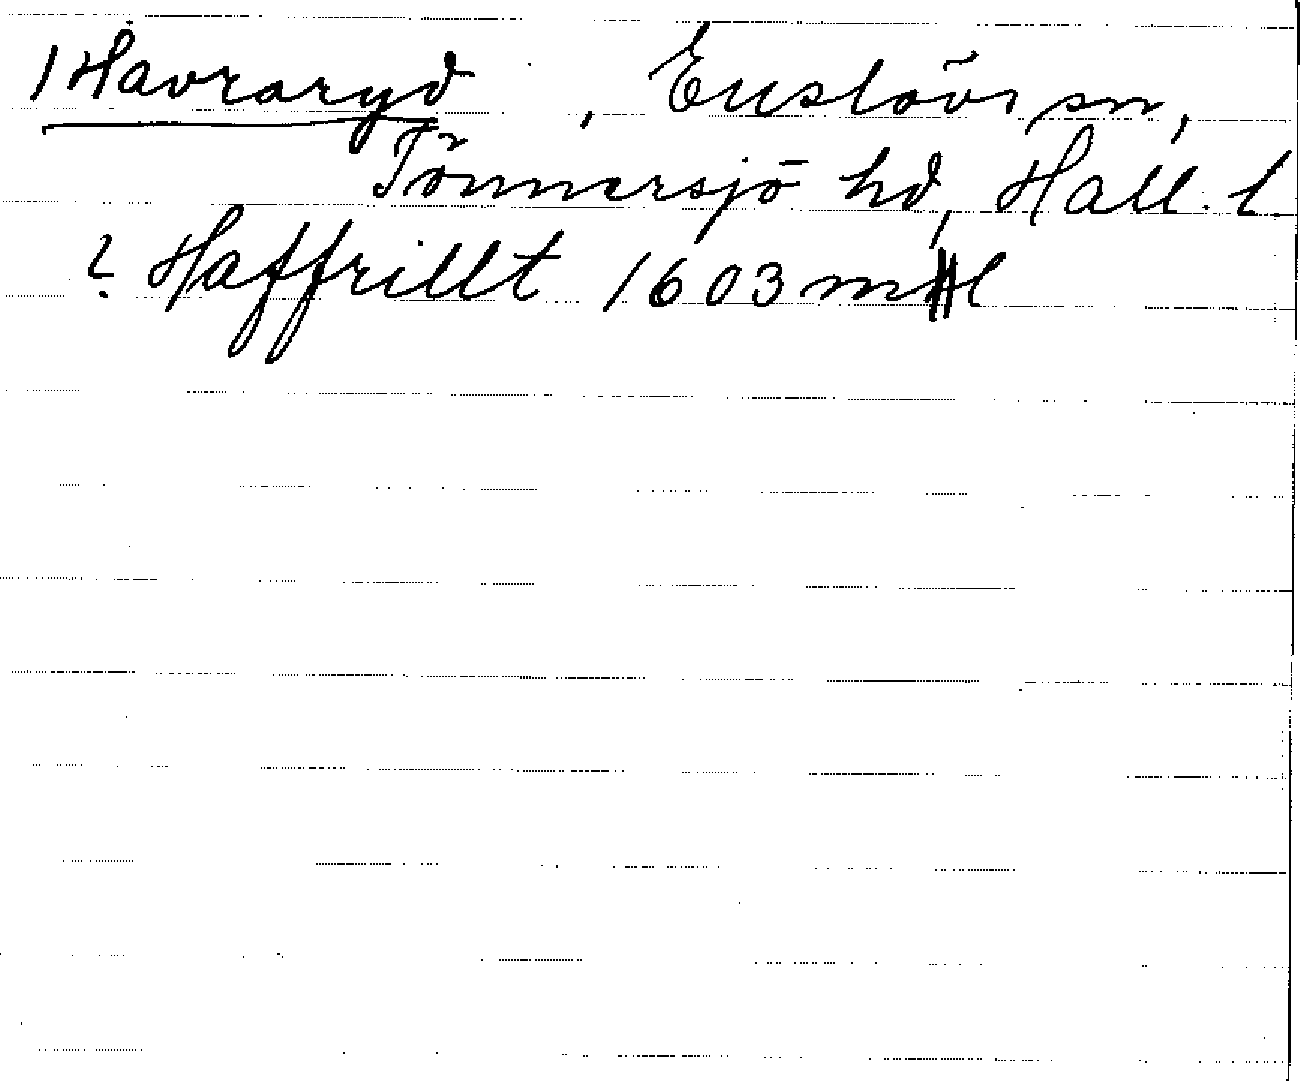 1 Havraryd , Enslövs sn,
Tönnersjö hd, Hall. l.
? Haffrillt 1603 mHl